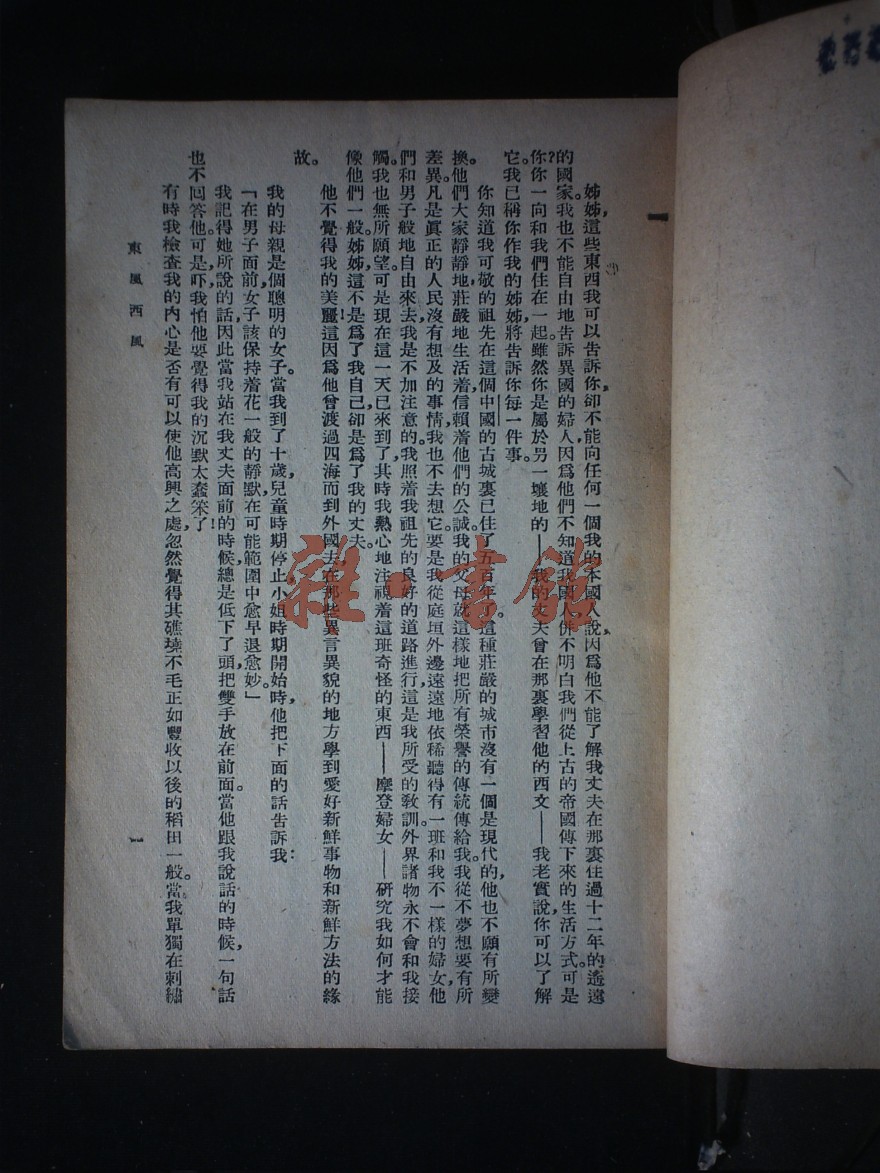 一
姊姊,這些東西我可以告訴你,卻不能向任何一個我的本國人說,因爲他不能了解我丈夫在那裏住過十二年的遙遠
的國家。我也不能自由地告訴異國的婦人,因爲他們不知道我國人,併不明白我們從上古的帝國傳下來的生活方式。可是
你?你一向和我們住在一起。雖然你是屬於另一壤地的——我的丈夫曾在那裏學習他的西文——我老實說,你可以了解
它。我已稱你作我的姊姊,將告訴你每一件事。
你知道我可敬的祖先在這個中國的古城裏已住了五百年了。這種莊嚴的城市沒有一個是現代的,他也不願有所變
換。他們大家靜靜地,莊嚴地生活着,信賴着他們的公誠。我的父母就這樣地把所有榮譽的傳統傳給我。我從不夢想要有所
差異。凡是眞正的人民沒有想及的事情,我也不去想它。要是我從庭垣外邊遠遠地依稀聽得有一班和我不一樣的婦女,他
們和男子般地自由來去,我是不加注意的。我照着我祖先的良好的道路進行,這是我所受的教訓。外界諸物永不會和我接
觸。我也無所願望。可是現在這一天已來到了,其時我熱心地注視着這班奇怪的東西——摩登婦女——研究我如何才能
像他們一般。姊姊,這不是爲了我自己,卻是爲了我的丈夫。
他不覺得我的美麗!這因爲他曾渡過四海而到外國去,在那些異言異貌的地方學到愛好新鮮事物和新鮮方法的緣
故。
我的母親是個聰明的女子。當我到了十歲,兒童時期停止,小姐時期開始時,他把下面的話告訴我:
「在男子面前,女子該保持着花一般的靜默,在可能範圍中愈早退愈妙。」
我記得她所說的話,因此當我站在我丈夫面前的時候,總是低下了頭,把雙手放在前面。當他跟我說話的時候,一句話
也不回答他。可是,吓,我怕他要覺得我的沉默太蠢笨了!
有時我檢查我的內心是否有可以使他高興之處,忽然覺得其礁墝不毛正如豐收以後的稻田一般。當我單獨在刺繡
東風西風
一
雜·書館